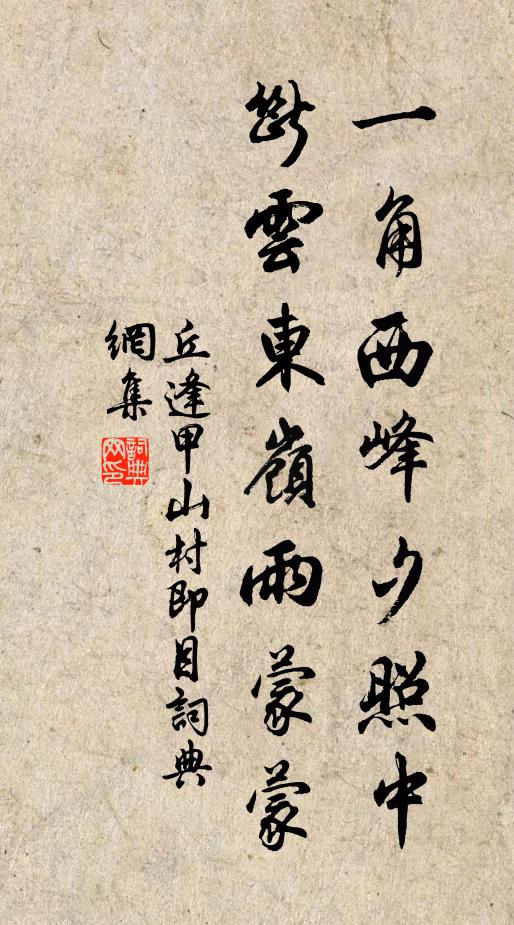 一角西峰夕照中
斷雲東嶺雨蒙蒙
丘逢甲山村即目詞典
網集
詞典
网印